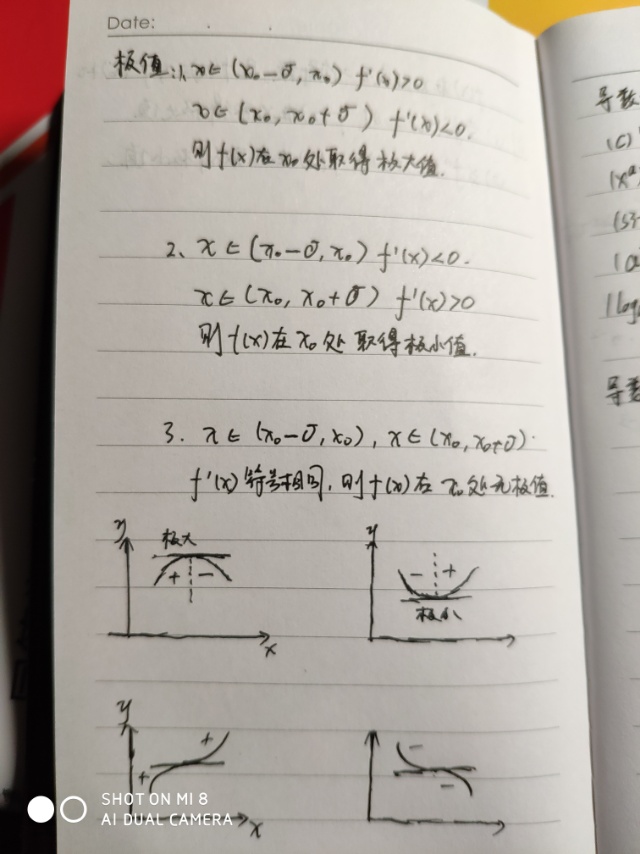 Date:
极值:1、x∈(x₀-σ, x₀) f'(x)>0
x∈(x₀, x₀+σ) f'(x)<0.
则f(x)在x₀处取得极大值.
2、x∈(x₀-σ, x₀) f'(x)<0.
x∈(x₀, x₀+σ) f'(x)>0
则f(x)在x₀处取得极小值.
3. x∈(x₀-σ, x₀), x∈(x₀, x₀+σ).
f'(x)符号相同, 则f(x)在x₀处无极值.
y 极大
+ -
x
y
- +
极小
y
+
+
x
-
-
导数
(C)
(xᵃ
(si
(a
(log
导数
SHOT ON MI 8
AI DUAL CAMERA